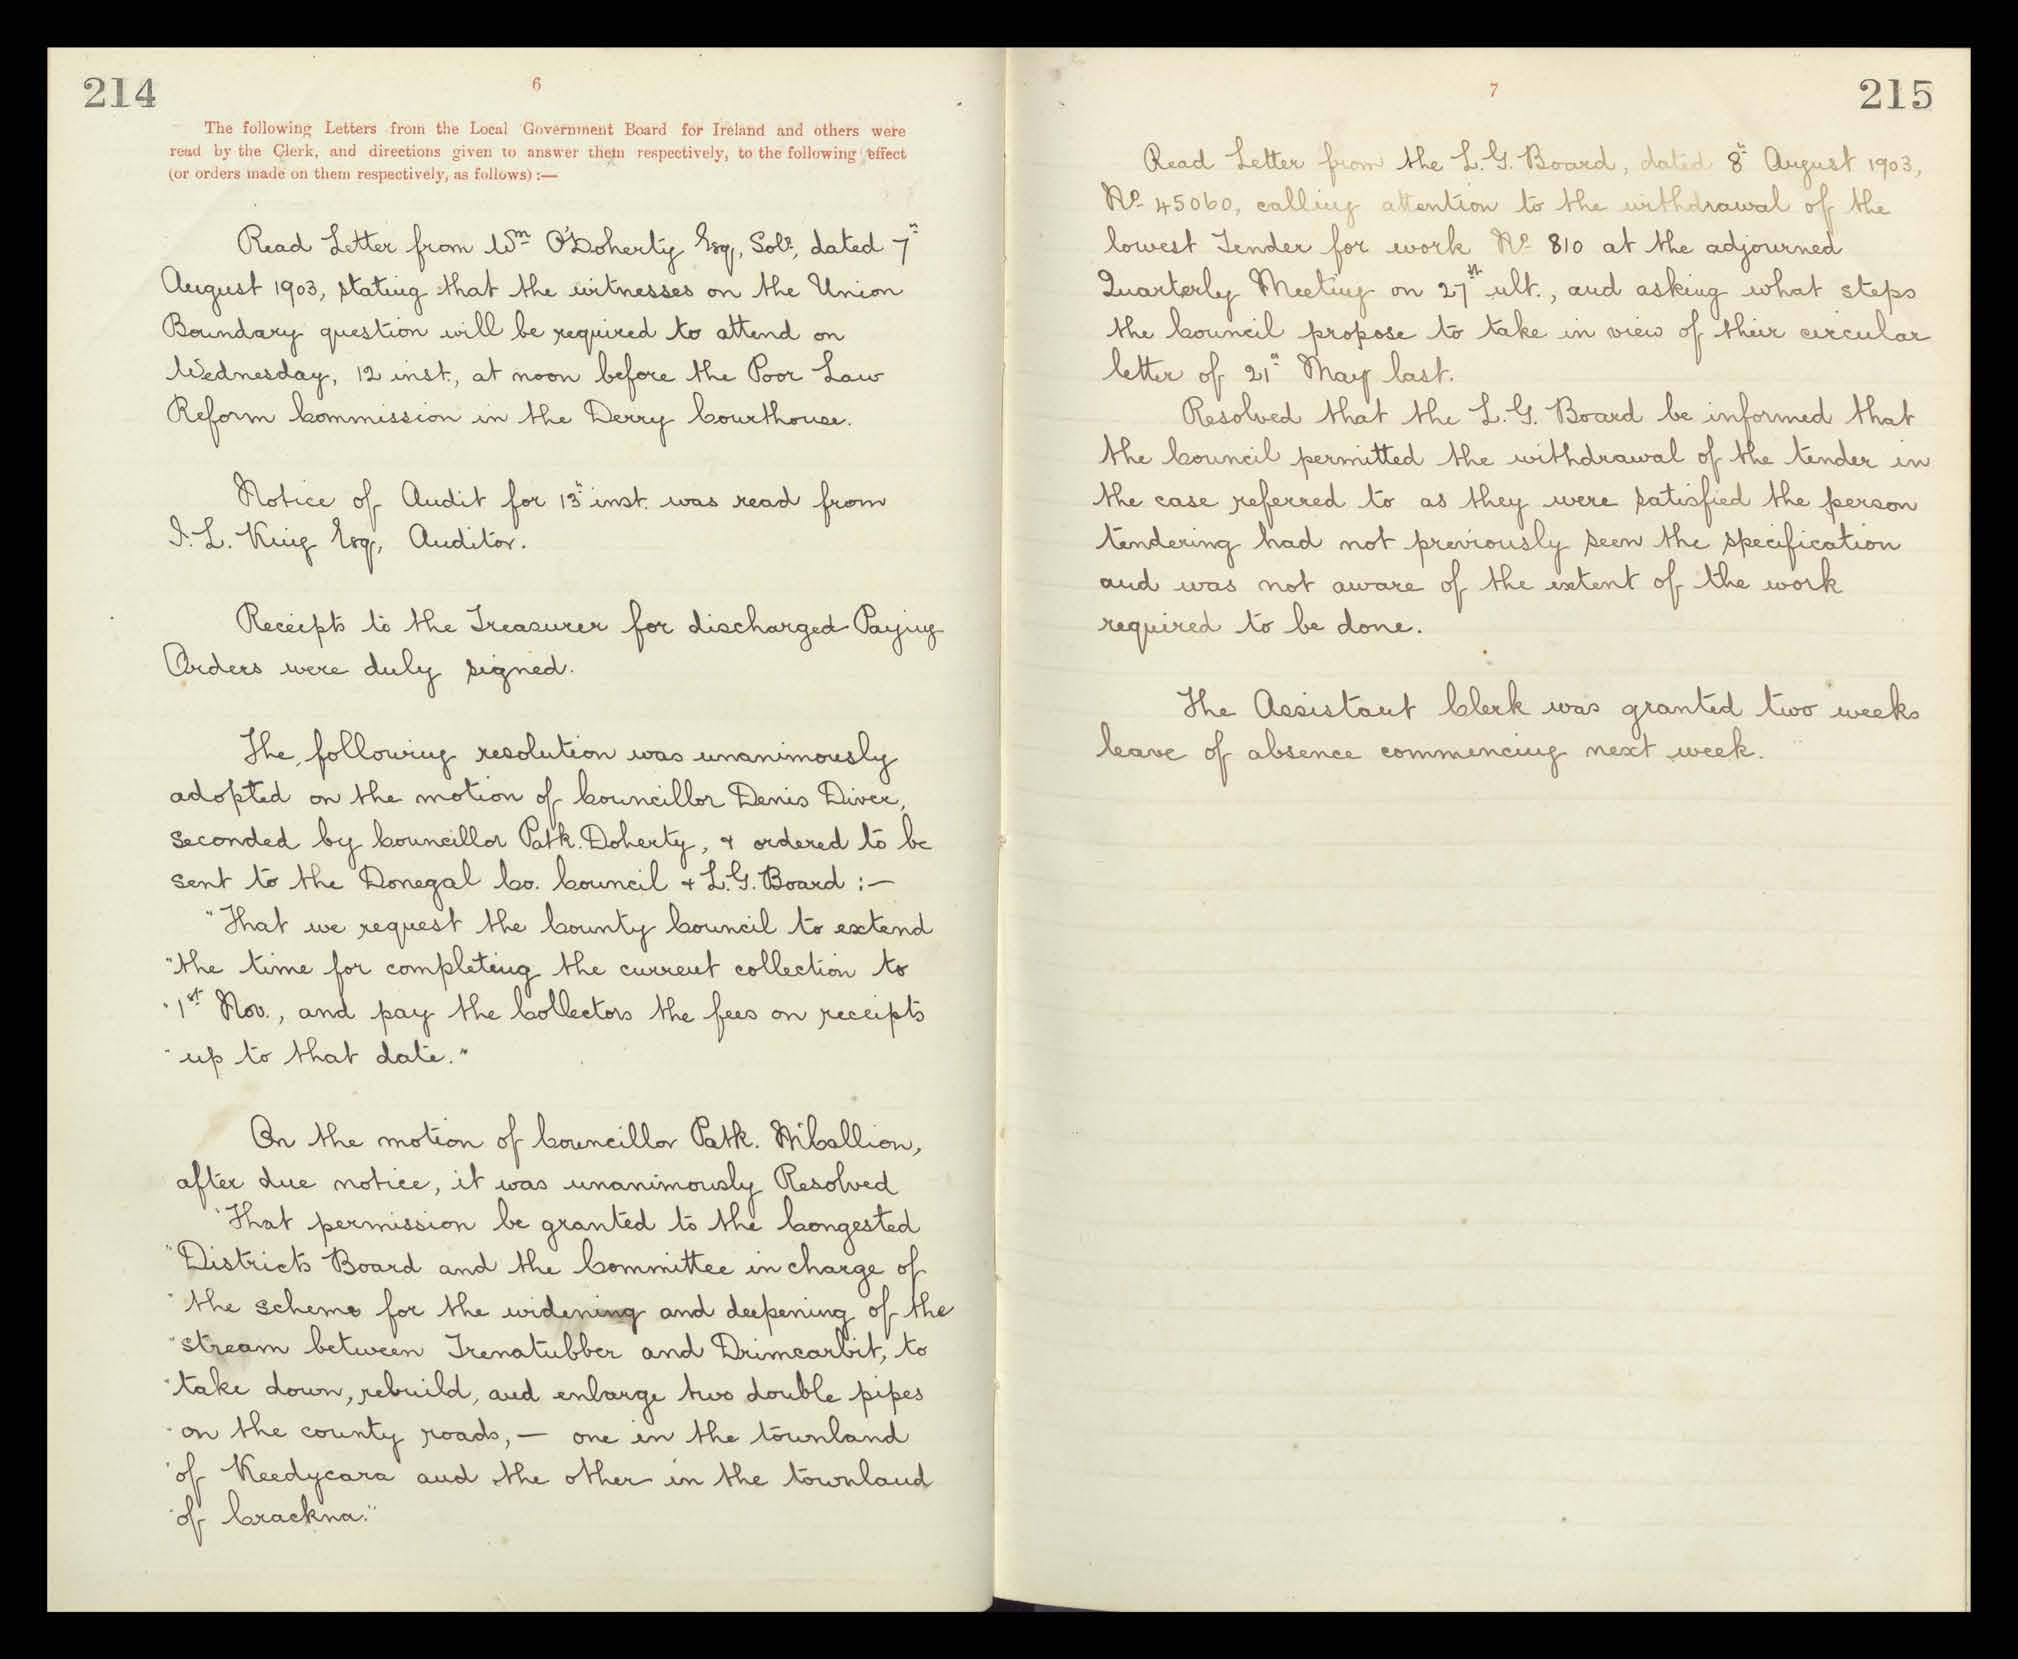 214
6
The following Letters from the Local Government Board for Ireland and others were
read by the Clerk, and directions given to answer them respectively, to the following effect
(or orders made on them respectively, as follows) :—
Read Letter from Wm O'Doherty Esq, Solr, dated 7th
August 1903, stating that the witnesses on the Union
Boundary question will be required to attend on
Wednesday, 12 inst., at noon before the Poor Law
Reform Commission in the Derry Courthouse.
Notice of Audit for 13th inst. was read from
I. L. King Esq, Auditor.
Receipts to the Treasurer for discharged Paying
Orders were duly signed.
The following resolution was unanimously
adopted on the motion of Councillor Denis Diver,
seconded by Councillor Patk. Doherty, & ordered to be
sent to the Donegal Co. Council & L.G. Board :—
"That we request the County Council to extend
"the time for completing the current collection to
"1st Nov., and pay the Collectors the fees on receipts
"up to that date."
On the motion of Councillor Patk. McCallion,
after due notice, it was unanimously Resolved
"That permission be granted to the Congested
"Districts Board and the Committee in charge of
"the scheme for the widening and deepening of the
"stream between Trenatubber and Drimcarbit, to
"take down, rebuild, and enlarge two double pipes
"on the county roads, — one in the townland
"of Keedycara and the other in the townland
"of Crackna."
7
215
Read Letter from the L.G. Board, dated 8th August 1903,
No 45060, calling attention to the withdrawal of the
lowest Tender for work No 810 at the adjourned
Quarterly Meeting on 27th ult., and asking what steps
the Council propose to take in view of their circular
letter of 21st May last.
Resolved that the L.G. Board be informed that
the Council permitted the withdrawal of the tender in
the case referred to as they were satisfied the person
tendering had not previously seen the specification
and was not aware of the extent of the work
required to be done.
The Assistant Clerk was granted two weeks
leave of absence commencing next week.